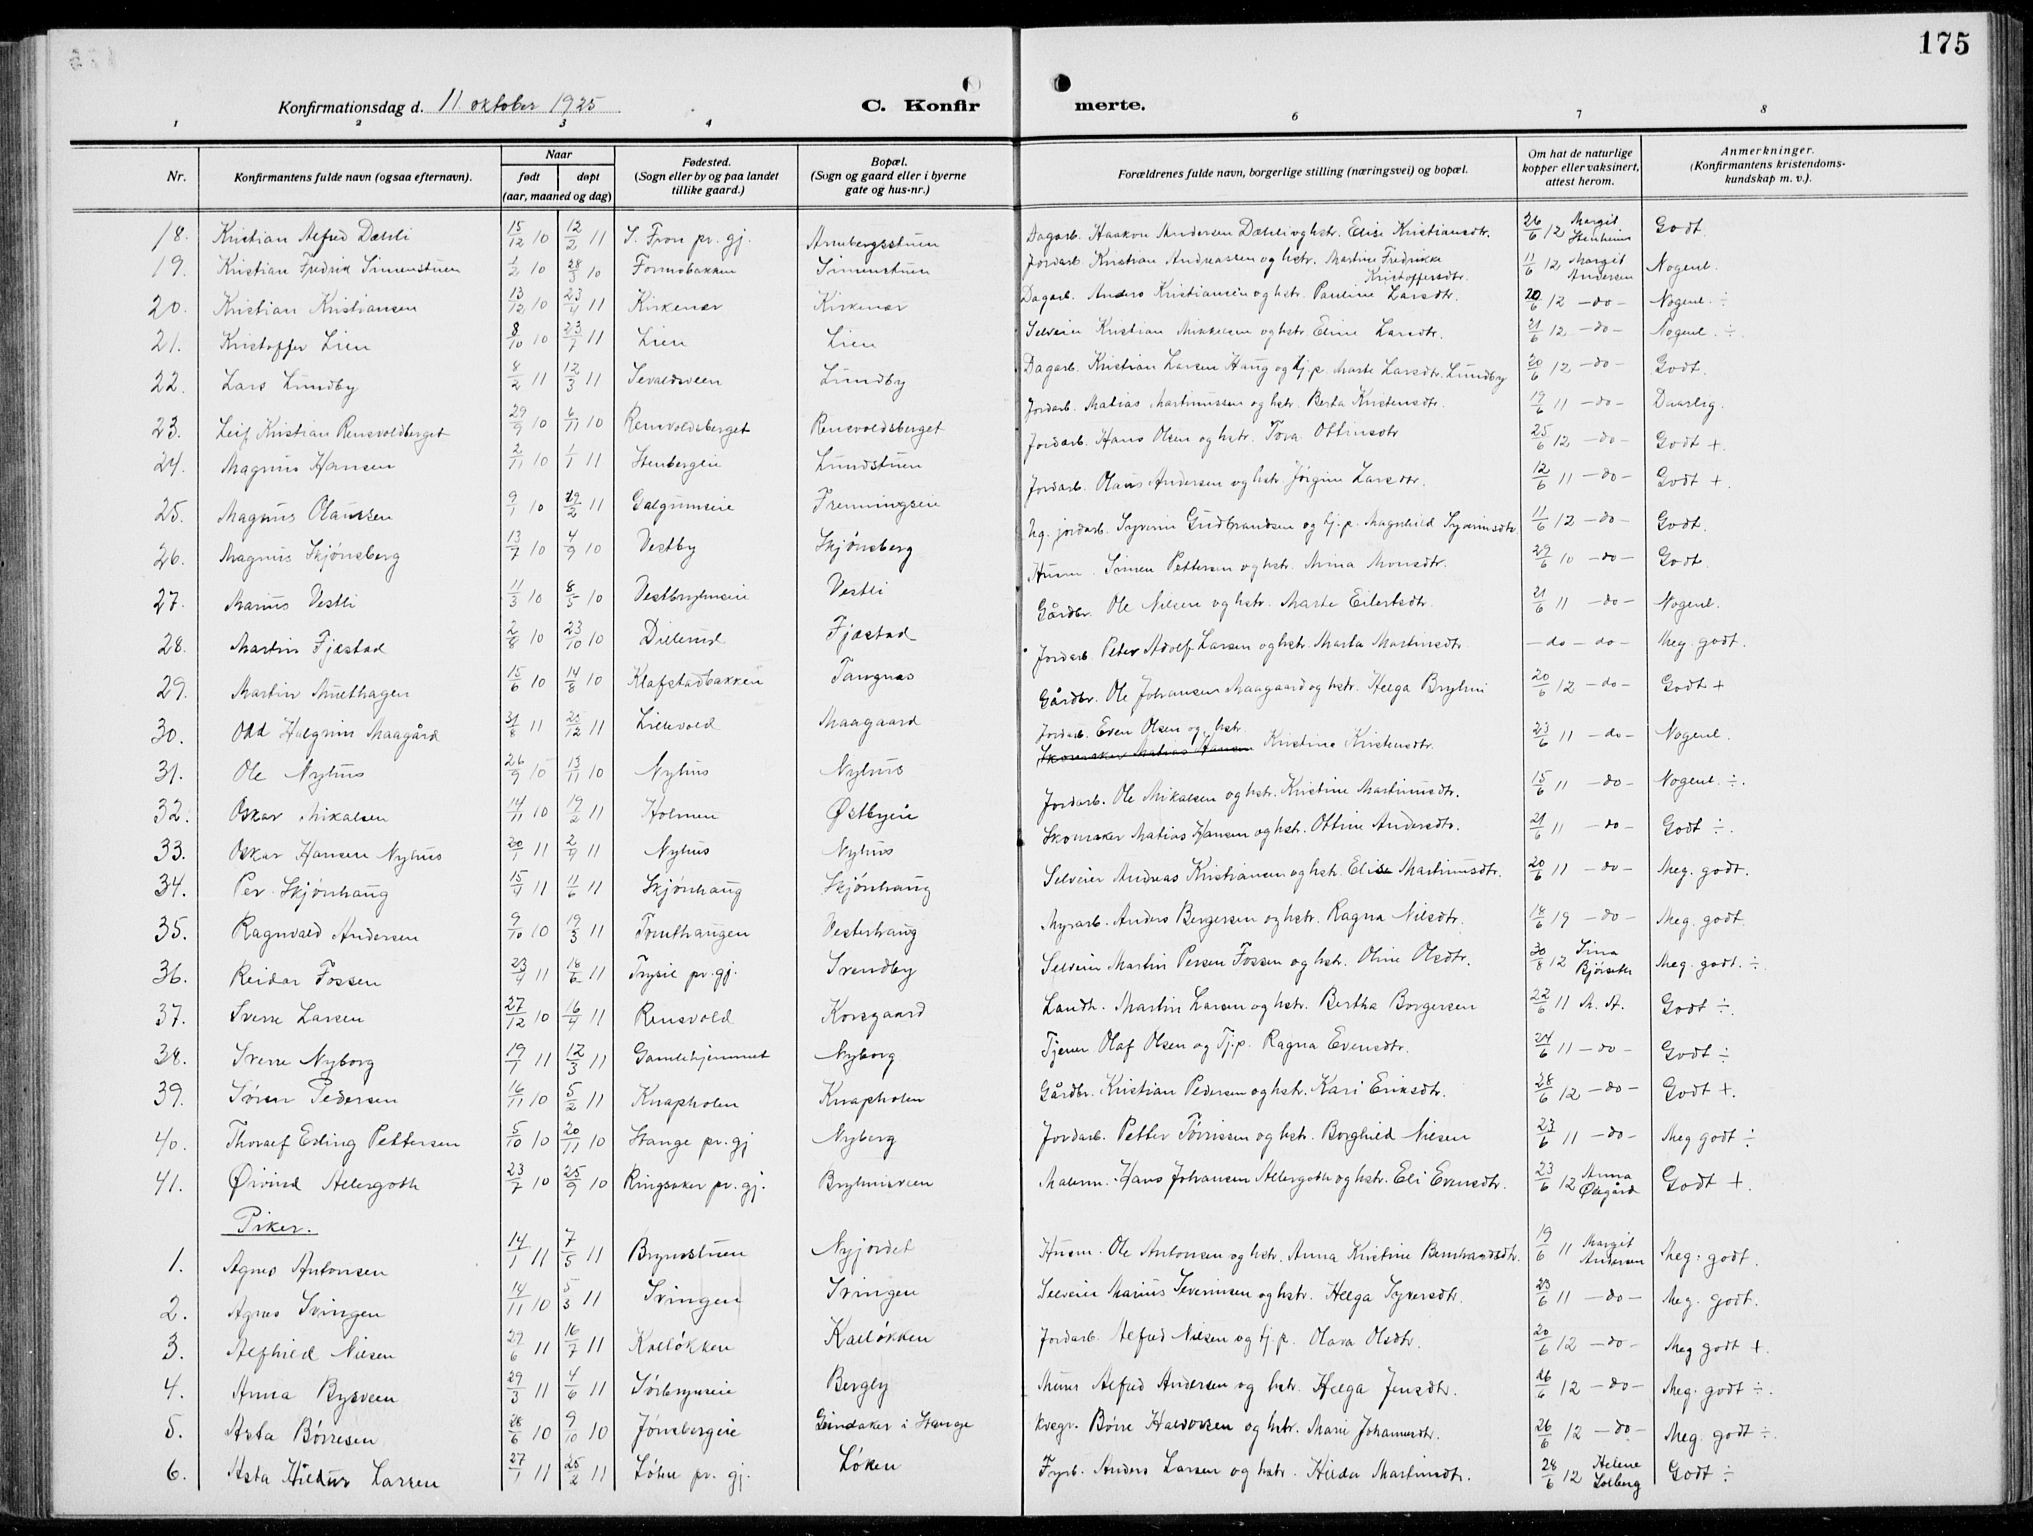 175
Konfirmationsdag d. 11. oktober 1925
C. Konfir merte.
1 2 3 4 6 7 8
Nr.
Konfirmantens fulde navn (ogsaa efternavn).
Naar
født døpt
(aar, maaned og dag)
Fødested.
(Sogn eller by og paa landet
tillike gaard.)
Bopæl.
(Sogn og gaard eller i byerne
gate og hus-nr.)
Forældrenes fulde navn, borgerlige stilling (næringsvei) og bopæl.
Om hat de naturlige
kopper eller vaksinert,
attest herom.
Anmerkninger.
(Konfirmantens kristendoms-
kundskap m. v.).
18. Kristian Alfred Dæhli 15/12 10 12/2 11 S. Fron pr. gj. Arnbergsstuen Dagarb. Haakon Andersen Dæhli og hstr. Elise Kristiansdtr. 26/6 12 Margit Stenheim Godt.
19. Kristian Fredrik Simenstuen 1/2 10 28/3 10 Formobakken Simenstuen Jordarb. Kristian Andreassen og hstr. Martine Fredrikke Kristoffersdtr. 11/6 12 Margit Andersen Nogenl.
20. Kristian Kristiansen 13/12 10 23/4 11 Kirkenær Kirkenær Dagarb. Anders Kristiansen og hstr. Pauline Larsdtr. 20/6 12 - do - Nogenl. ÷
21. Kristoffer Lien 8/10 10 23/1 11 Lien Lien Selveier Kristian Mikkelsen og hstr. Eline Larsdtr. 21/6 12 - do - Nogenl. ÷.
22. Lars Lundby 8/2 11 12/3 11 Sevaldsveen Lundby Dagarb. Kristian Larsen Haug og tj.p. Marte Larsdtr. Lundby 20/6 12 - do - Godt.
23. Leif Kristian Rensvoldberget 29/9 10 6/11 10 Rensvoldsberget Rensvoldsberget Jordarb. Matias Martinussen og hstr. Berta Kristensdtr. 19/6 11 - do - Daarlig.
24. Magnus Hansen 2/11 10 1/1 11 Stenbergeie Lundstuen Jordarb. Hans Olsen og hstr. Tora Ottinsdtr 25/6 12 - do - Godt +.
25. Magnus Olaussen 9/1 10 29/2 11 Galgumseie Frenningseie Jordarb. Olaus Andersen og hstr. Jørgine Larsdtr. 12/6 11 - do - Godt +.
26. Magnus Skjønsberg 13/7 10 4/9 10 Vestby Skjønsberg Ug. jordarb. Syverin Gudbrandsen og tj.p. Magnhild Syverinsdtr. 11/6 12 - do - Godt.
27. Marius Vestli 11/3 10 8/5 10 Vestbryhnseie Vestli Husm. Simen Pettersen og hstr. Mina Monsdtr. 29/6 10 - do - Godt.
28. Martin Fjæstad 2/8 10 23/10 10 Dillerud Fjæstad Gårdbr. Ole Nilsen og hstr. Marte Eilertsdtr. 21/6 11 - do - Nogenl.
29. Martin Muethagen 15/6 10 14/8 10 Klafstadbakken Tangnæs Jordarb. Peter Adolf Larsen og hstr. Marta Martinsdtr - do - do - Meg. godt.
30. Odd Halgrim Maagård 31/8 11 25/12 11 Lillevold Maagaard Gårdbr. Ole Johansen Maagaard og hstr. Helga Bryhni 20/6 12 - do - Godt +
31. Ole Nyhus 26/9 10 13/11 10 Nyhus Nyhus Jordarb. Even Olsen og hstr. Skomaker Matias Hansen Kristine Kristensdtr. 23/6 11 - do - Nogenl.
32. Oskar Mikalsen 14/11 10 19/2 11 Holmen Østbyeie Jordarb. Ole Mikalsen og hstr. Kristine Martinusdtr. 15/6 11 - do - Nogenl ÷.
33. Oskar Hansen Nyhus 20/1 11 2/4 11 Nyhus Nyhus Skomaker Matias Hansen og hstr. Ottine Andersdtr. 21/6 11 - do - Godt ÷.
34. Per Skjønhaug 15/4 11 11/6 11 Skjønhaug Skjønhaug Selveier Andreas Kristiansen og hstr. Elise Martinusdtr. 20/6 11 - do - Meg. godt.
35. Ragnvald Andersen 9/10 10 19/3 11 Tomthaugen Vesterhaug Myrarb. Anders Bergersen og hstr. Ragna Nilsdtr. 18/6 19 - do - Meg. godt
36. Reidar Fossen 23/4 11 18/6 11 Trysil pr. gj. Svendby Selveier Martin Persen Fossen og hstr. Oline Olsdtr. 30/8 12 Tina Bjørseth Meg. godt. ÷.
37. Sverre Larsen 27/12 10 16/4 11 Rensvold Korsgaard Landh. Martin Larsen og hstr. Bertha Borgersen 22/6 11 M. A. Godt ÷
38. Sverre Nyborg 19/1 11 12/3 11 Gamlehjemmet Nyborg Tjener Olaf Olsen og Tj.p. Ragna Evensdtr. 24/6 11 - do - Godt ÷
39. Søren Pedersen 16/11 10 5/2 11 Knapholen Knapholen Gårdbr. Kristian Pedersen og hstr. Kari Eriksdtr. 28/6 12 - do - Godt +.
40. Thoralf Erling Pettersen 5/10 10 20/11 10 Stange pr. gj Nyberg Jordarb. Petter Tørrissen og hstr. Borghild Nilsen 23/6 11 - do - Meg godt ÷
41. Øivind Allergoth 23/7 10 25/9 10 Ringsaker pr. gj. Bryhnisveen Malerm. Hans Johansen Allergodt og hstr. Eli Evensdtr. 23/6 12 Anna Ødegård Godt +.
Piker.
1. Agnes Antonsen 14/1 11 7/5 11 Brynstuen Nyjordet Husm. Ole Antonsen og hstr. Anna Kristine Bernhardsdtr. 19/6 11 Margit Andersen Meg. godt.
2. Agnes Svingen 14/11 10 5/3 11 Svingen Svingen Selveier Marius Severinsen og hstr. Helga Syversdtr. 23/6 11 - do - Meg. godt.
3. Alfhild Nilsen 29/6 11 16/7 11 Kalløkken Kalløkken Jordarb. Alfred Nilsen og tj.p. Olava Olsdtr. 20/6 12 - do - Meg godt +.
4. Anna Bysveen 29/3 11 4/6 11 Sørbryneie Bergly Murer Alfred Andersen og hstr. Helga Jensdtr. 26/6 12 - do - Meg. godt ÷.
5. Asta Børresen 28/6 10 9/10 10 Jønsbergeie Grindaker i Stange Kvegr. Børre Halvorsen og hstr. Marie Johannesdtr. 26/6 12 - do - Meg. godt ÷.
6. Asta Hildur Larsen 27/1 11 25/2 11 Løten pr. gj. Løken Fyrb. Anders Larsen og hstr. Hilda Martinsdtr. 28/6 12 Helene Solberg Godt ÷